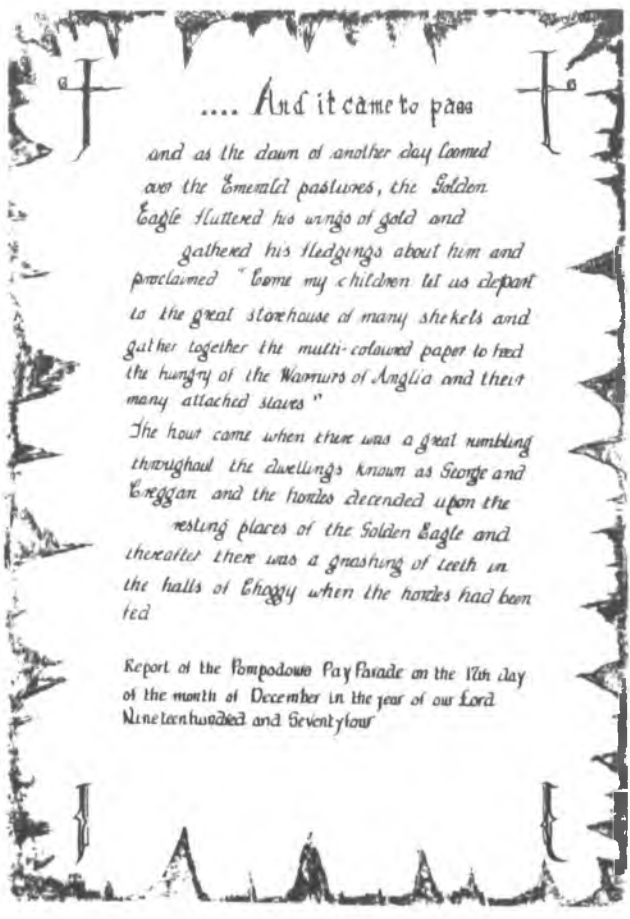 .... And it came to pass
and as the dawn of another day loomed
over the Emerald pastures, the Golden
Eagle fluttered his wings of gold and
gathered his fledgings about him and
proclaimed "Come my children let us depart
to the great storehouse of many shekels and
gather together the multi-coloured paper to feed
the hungry of the Warriors of Anglia and their
many attached slaves"
The hour came when there was a great rumbling
throughout the dwellings known as George and
Creggan and the hordes decended upon the
resting places of the Golden Eagle and
thereafter there was a gnashing of teeth in
the halls of Choggy when the hordes had been
fed
Report of the Pompadours Pay Parade on the 12th day
of the month of December in the year of our Lord
Nineteen hundred and Seventyfour